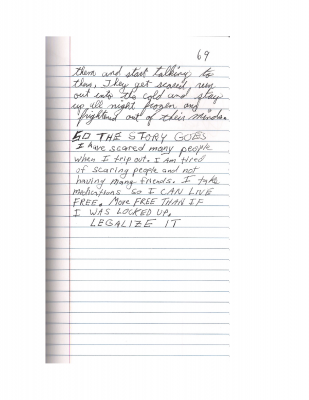 69
them and start talking to
them. They get scared, run
out into the cold and stay
up all night frozen and
frightend out of their minds.
SO THE STORY GOES
I have scared many people
when I trip out. I am tired
of scaring people and not
having many friends. I take
medications so I CAN LIVE
FREE. More FREE THAN IF
I WAS LOCKED UP.
LEGALIZE IT